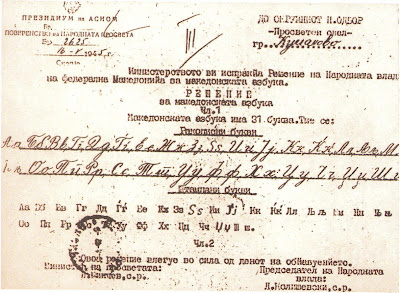 ПРЕЗИДИУМ на АСНОМ
ПОВЕРЕНСТВО на НАРОДНАТА ПРОСВЕТА
Бр. 2625
16-V 1945
Скопје
III
ДО ОКРУЖНИОТ Н.ОДБОР
-Просветен одел-
гр. Куманово
Министерството ви испраќа Решение на Народната влада
на федерална Македонија за македонската азбука.
РЕШЕНИЕ
за македонската азбука
Чл.1
Македонската азбука има 31.буква.Тие се:
Ракописни букви
Аа Бб Вв Гг Дд Ѓѓ Ее Жж Зз Ѕѕ Ии Јј Кк Ќќ Лл
Оо Пп Рр Сс Тт Уу Фф Хх Цц Чч Џџ Шш
Печатани букви
Аа Бб Вв Гг Дд Ѓѓ Ее Жж Зз Ѕѕ Ии Јј Кк Ќќ Лл Љљ Мм Нн Њњ
Оо Пп Рр Тт Уу Фф Хх Цц Чч Џџ Шш
Чл.2
Ова решение влегуе во сила од денот на објавуењето.
Министер на просветата:
с.р.
Председател на Народната
влада:
Л.Колишевски,с.р.